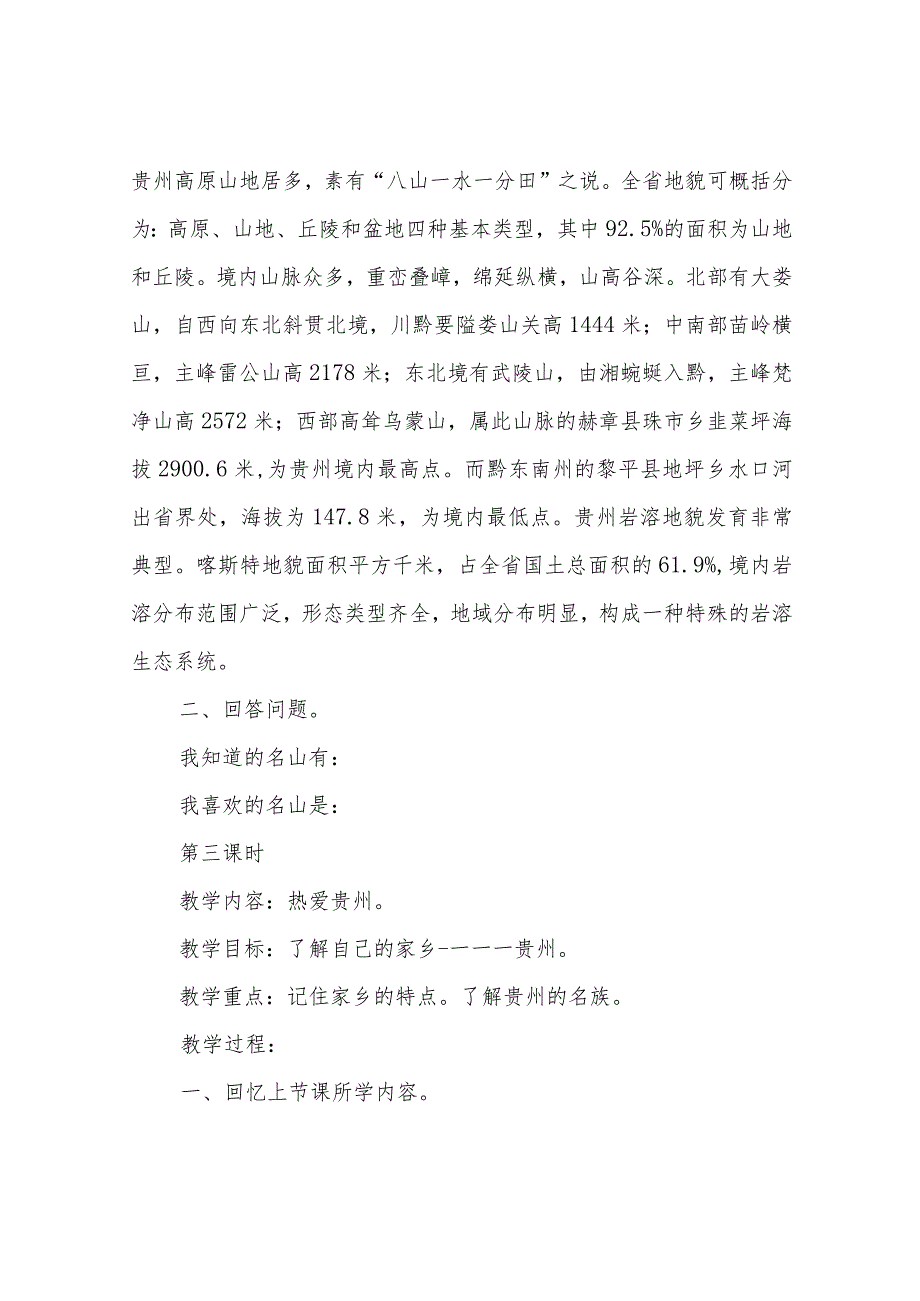 贵州高原山地居多，素有“八山一水一分田”之说。全省地貌可概括分
为：高原、山地、丘陵和盆地四种基本类型，其中92.5%的面积为山地
和丘陵。境内山脉众多，重峦叠嶂，绵延纵横，山高谷深。北部有大娄
山，自西向东北斜贯北境，川黔要隘娄山关高1444米；中南部苗岭横
亘，主峰雷公山高2178米；东北境有武陵山，由湘蜿蜒入黔，主峰梵
净山高2572米；西部高耸乌蒙山，属此山脉的赫章县珠市乡韭菜坪海
拔2900.6米,为贵州境内最高点。而黔东南州的黎平县地坪乡水口河
出省界处，海拔为147.8米，为境内最低点。贵州岩溶地貌发育非常
典型。喀斯特地貌面积平方千米，占全省国土总面积的61.9%,境内岩
溶分布范围广泛，形态类型齐全，地域分布明显，构成一种特殊的岩溶
生态系统。
二、回答问题。
我知道的名山有：
我喜欢的名山是：
第三课时
教学内容：热爱贵州。
教学目标：了解自己的家乡-一一一贵州。
教学重点：记住家乡的特点。了解贵州的名族。
教学过程：
一、回忆上节课所学内容。